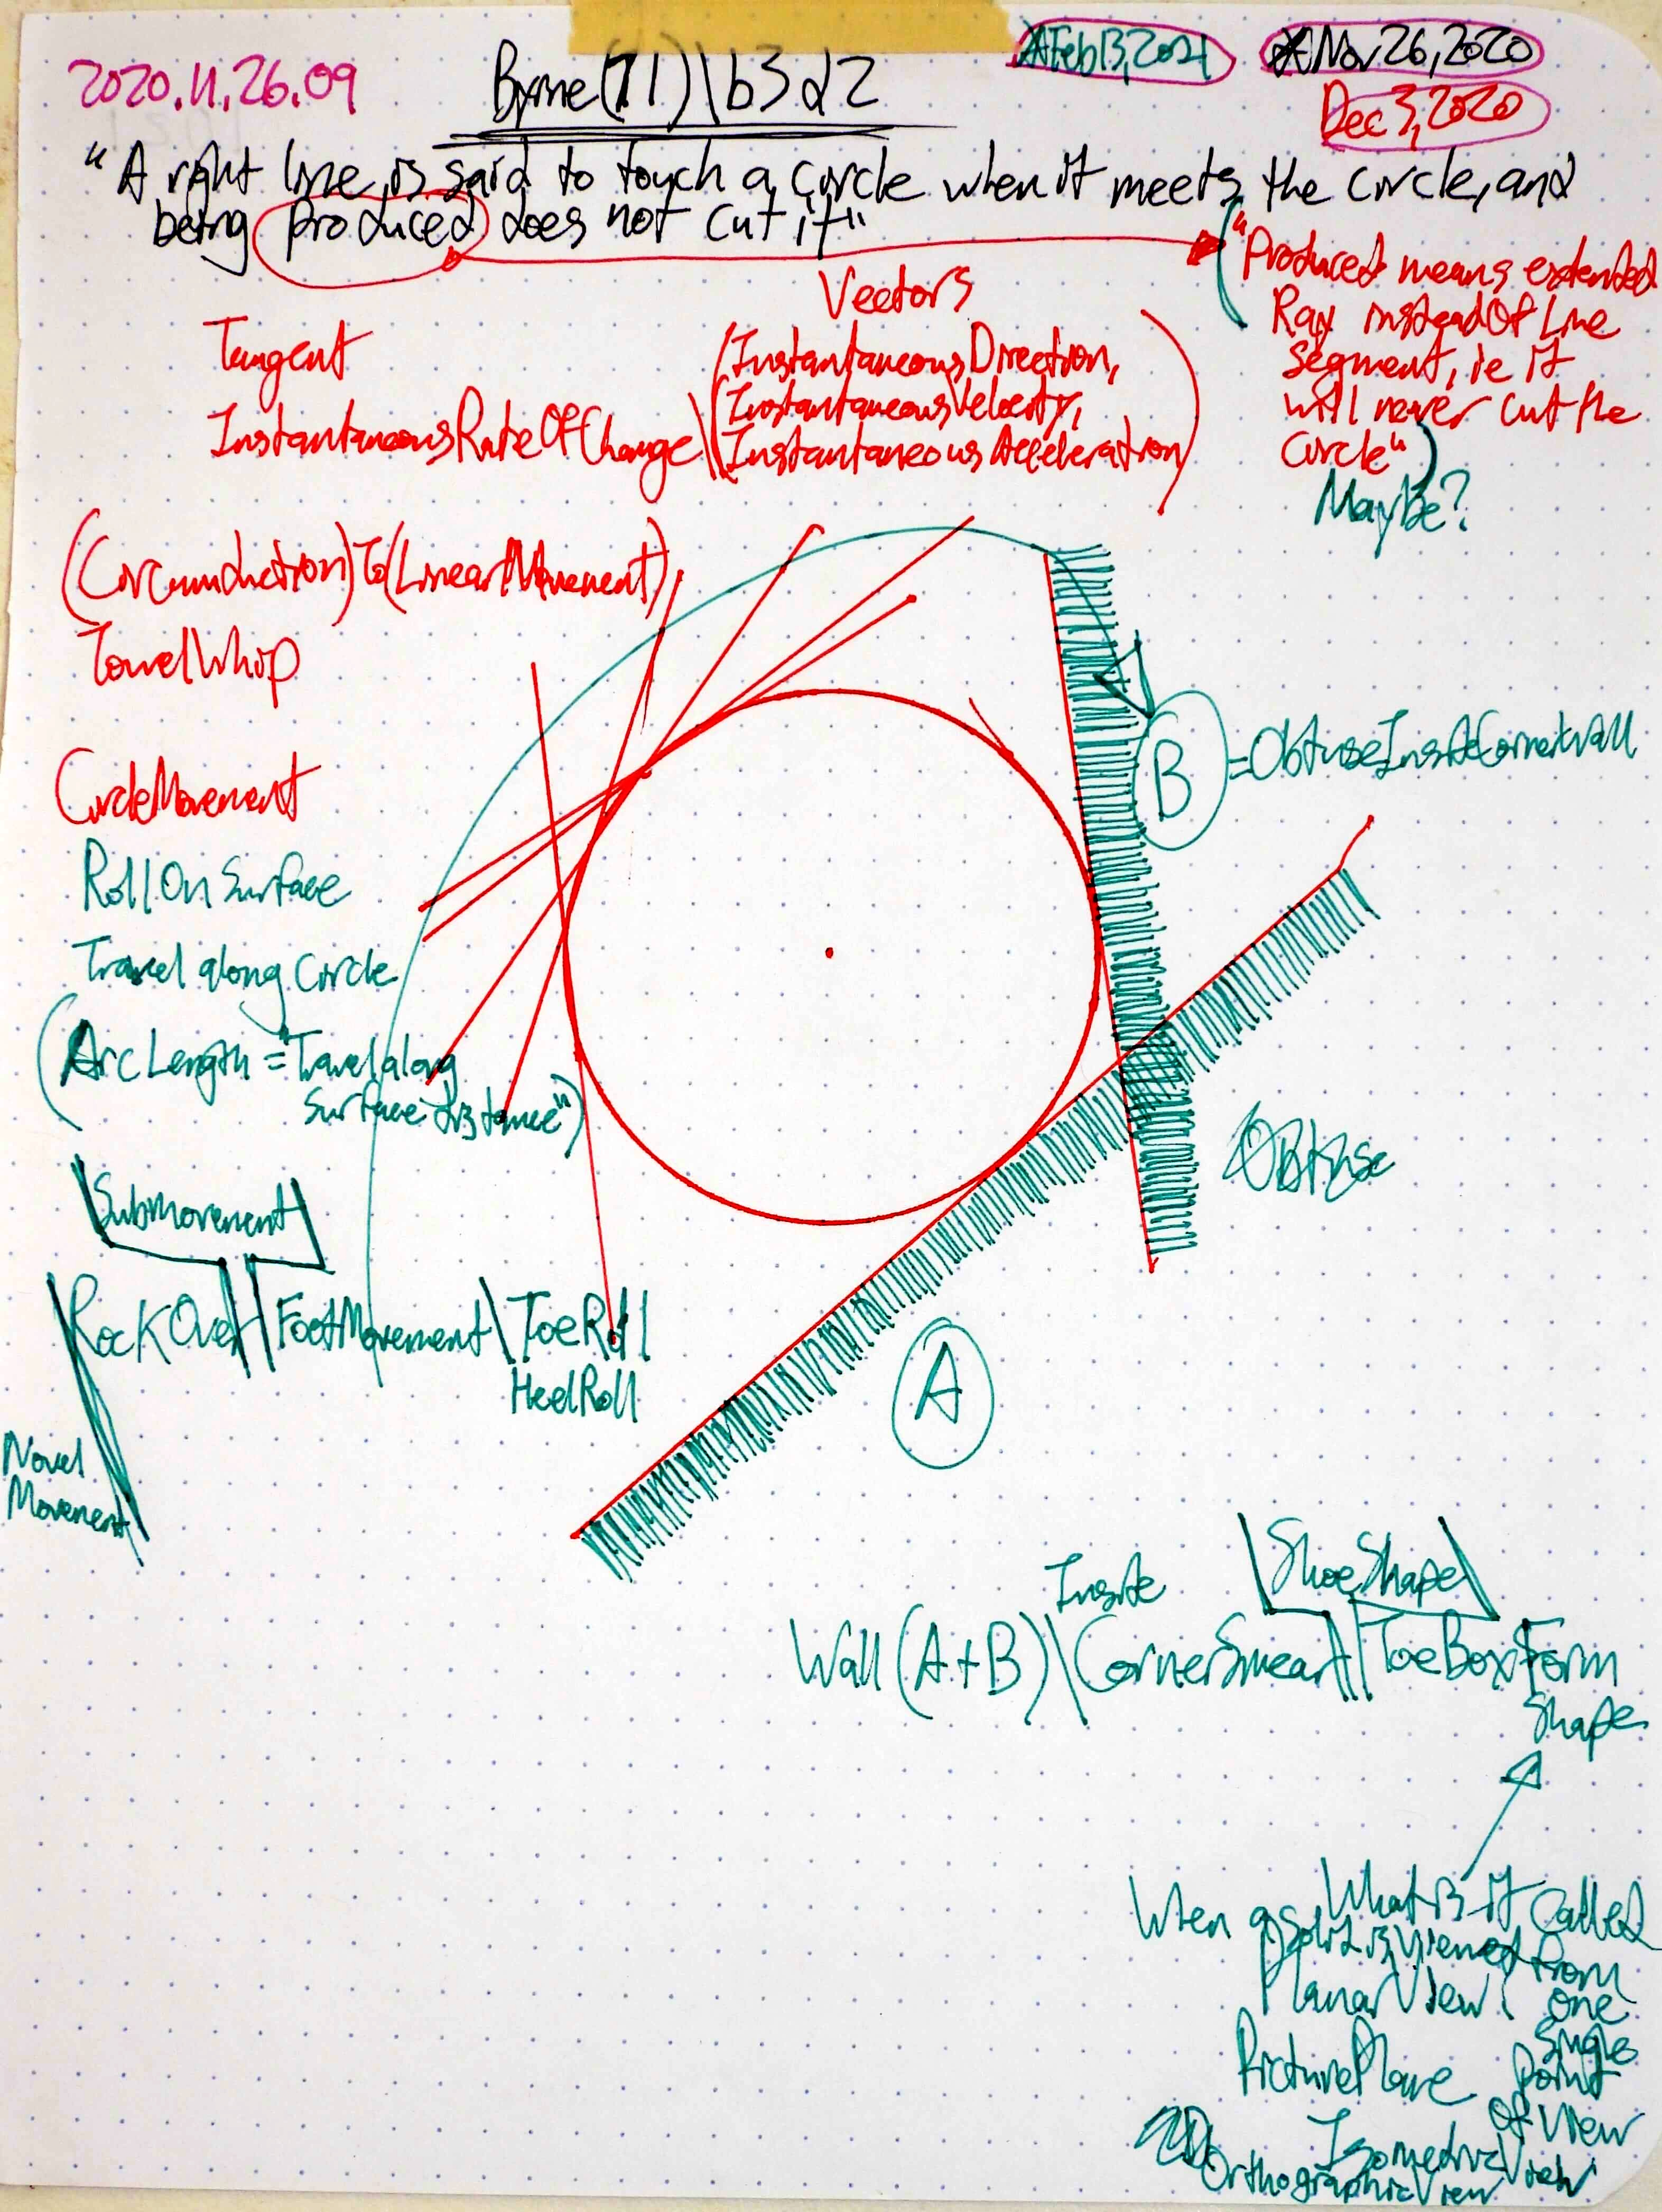 2020.11.26.09
Byrne(71)\b3d2
Feb13,2021
Nov26,2020
Dec3,2020
"A right line is said to touch a circle when it meets the circle, and
being produced does not cut it"
("Produced means extended
Ray insteadOf Line
Segment, ie it
will never cut the
Circle")
MayBe?
Tangent
InstantaneousRateOfChange\
Vectors
(InstantaneousDirection,
InstantaneousVelocity,
InstantaneousAcceleration)
(Circumduction)To(LinearMovement)
TowelWhip
CircleMovement
RollOnSurface
Travel along Circle
(ArcLength = "Travel along
Surface Distance")
B =ObtuseInsideCornerWall
Obtuse
A
SubMovement
RockOver\FootMovement\ToeRoll
HeelRoll
Novel
Movement
Inside
ShoeShape
Wall(A+B)\CornerSmear\ToeBoxForm
Shape
What is it Called
When a Solid is Viewed from
one
Single
Point
of View
PlanarView?
PicturePlane
IsometricView
2D
OrthographicView